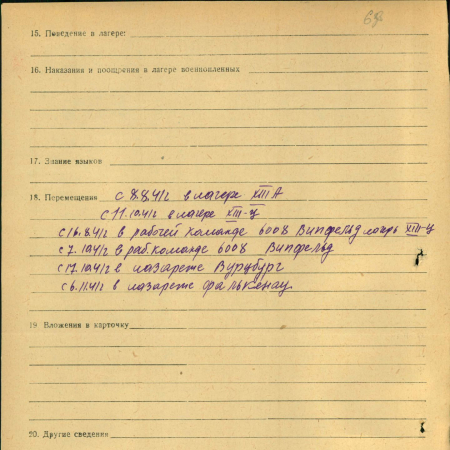 69
15. Поведение в лагере:
16. Наказания и поощрения в лагере военнопленных
17. Знание языков
18. Перемещения с 8.8.41г в лагере XIII А
с 11.10.41г в лагере XIII-Ц
с 16.8.41г в рабочей команде 6008 Випфельд лагерь XIII-Ц
с 7.10.41г в раб. команде 6008 Випфельд
с 17.10.41г в лазарете Вурцбург
с 6.11.41г в лазарете Фалькенау.
19. Вложения в карточку
20. Другие сведения